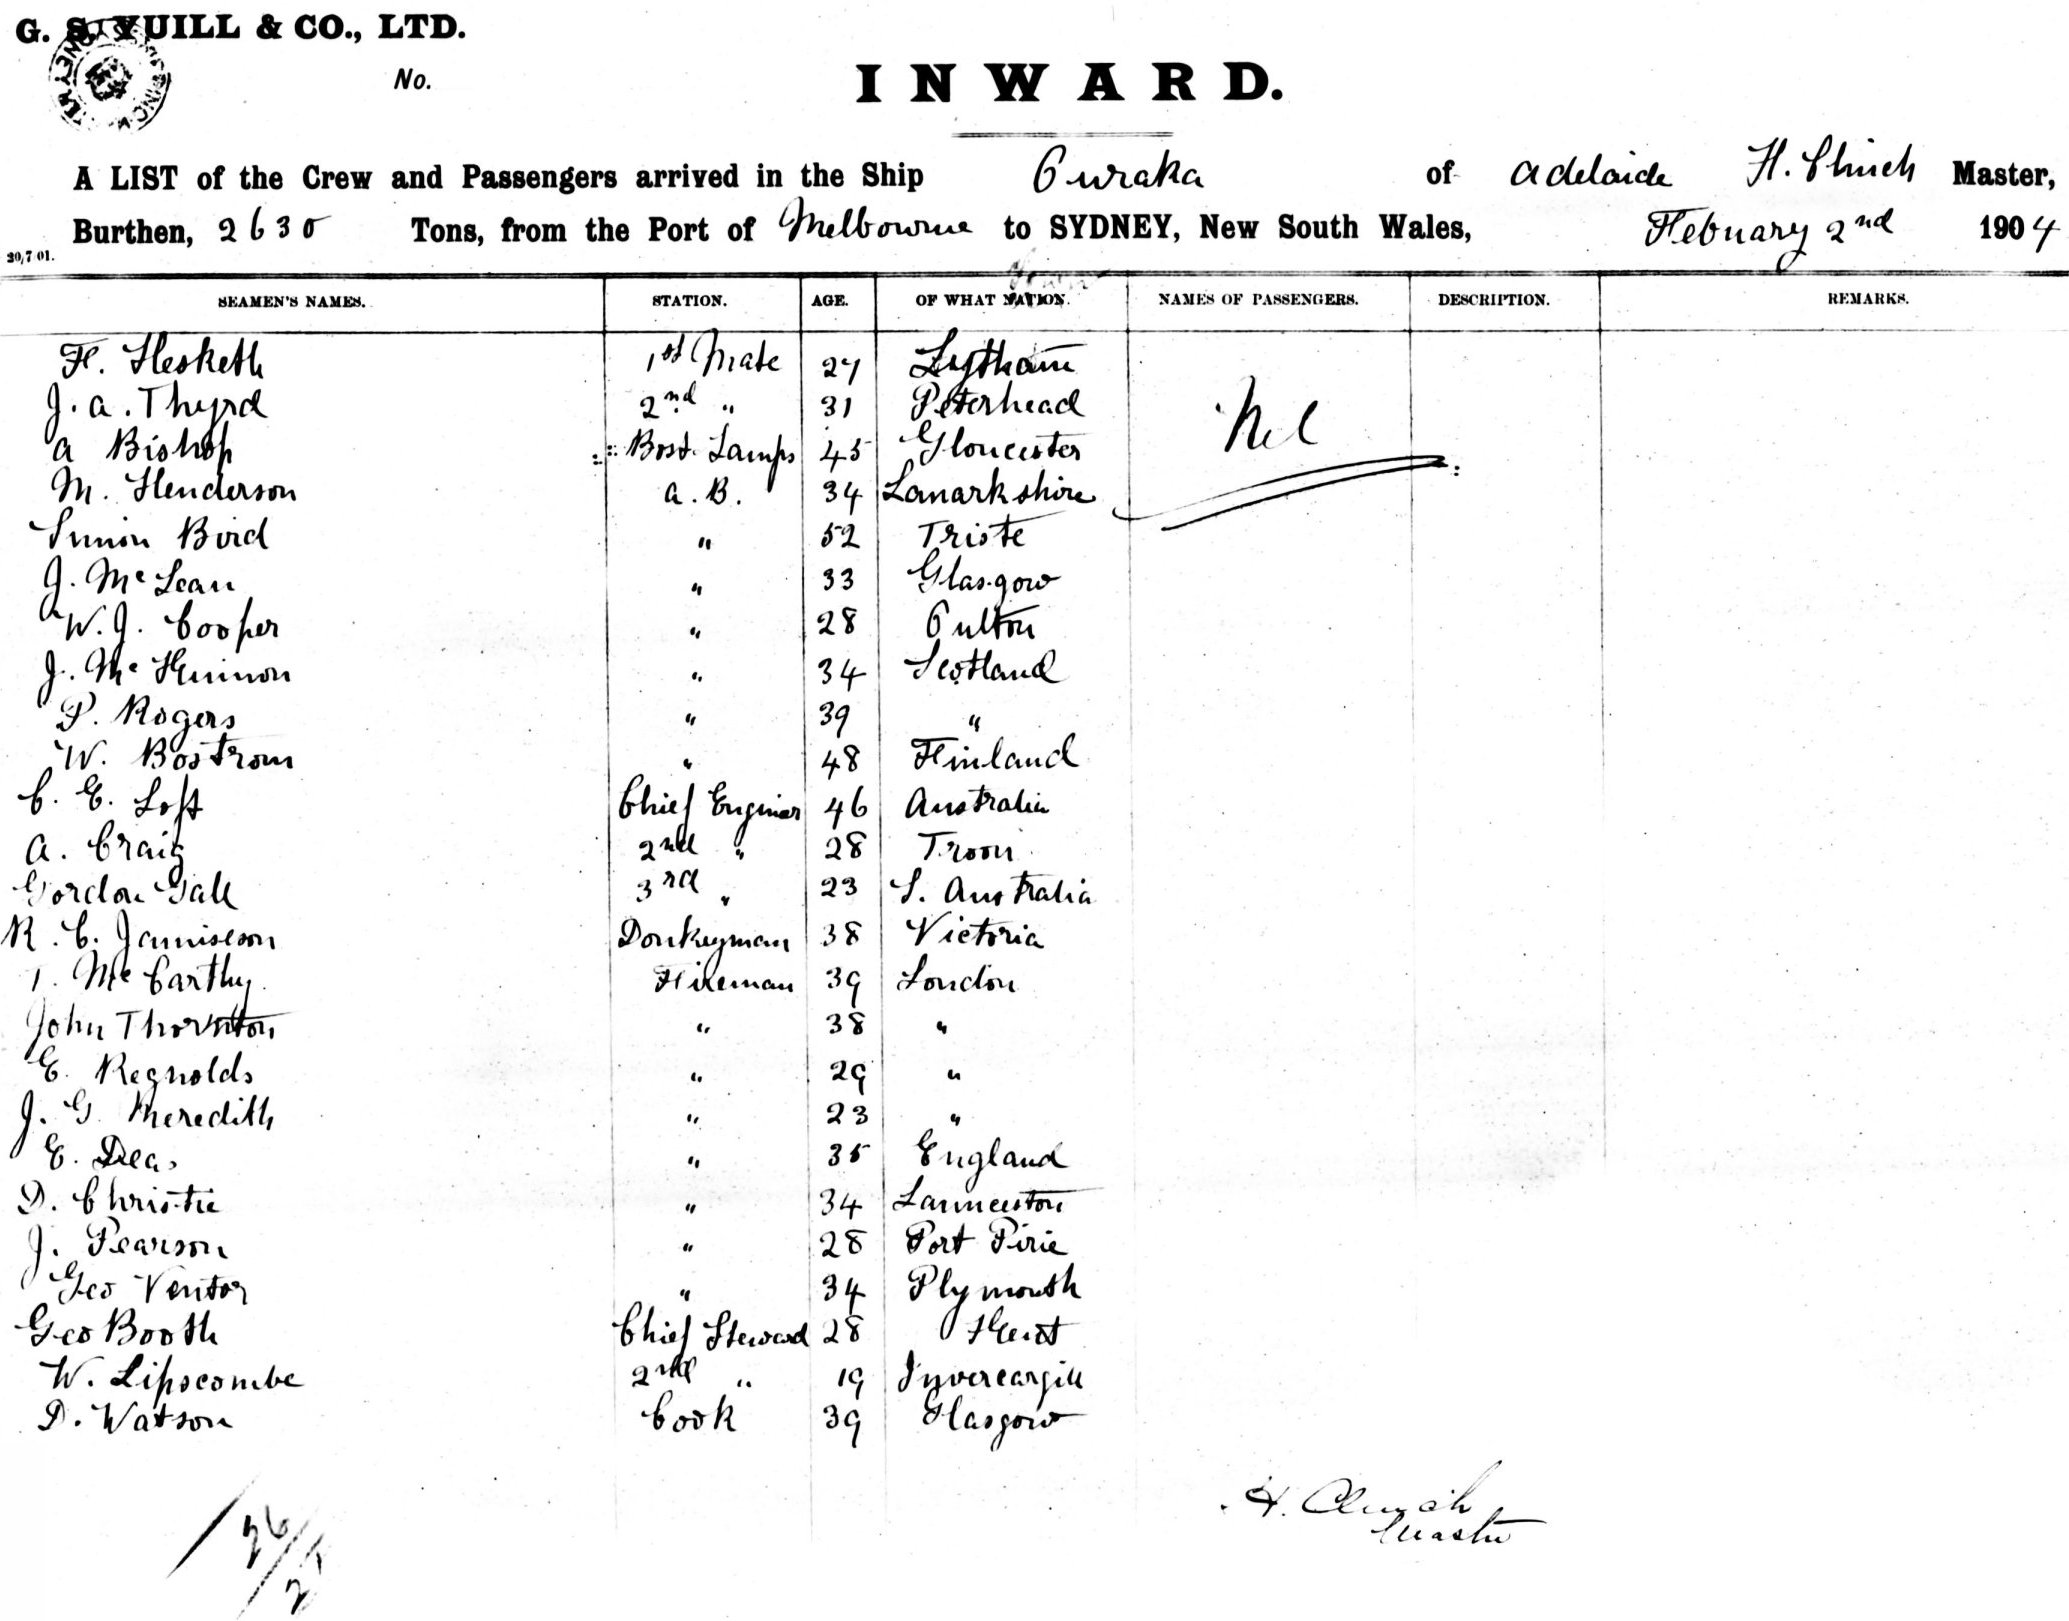 G. S. YUILL & CO., LTD.
No.
INWARD.
A LIST of the Crew and Passengers arrived in the Ship Ouraka of Adelaide H. Clinch Master,
Burthen, 2630 Tons, from the Port of Melbourne to SYDNEY, New South Wales, Febuary 2nd 1904
20/7 01.
SEAMEN'S NAMES. STATION. AGE. OF WHAT NATION. NAMES OF PASSENGERS. DESCRIPTION. REMARKS.
H. Hesketh 1st Mate 27 Lytham
J. A. Thyrd 2nd " 31 Peterhead
A Bishop Bost. Lamps 45 Gloucester Nil
M. Henderson A. B. 34 Lanarkshire
Simon Bird " 52 Triste
J. Mc Lean " 33 Glasgow
W. J. Cooper " 28 Oulton
J. Mc Kinnon " 34 Scotland
P. Rogers " 39 "
W. Bostrom " 48 Finland
C. E. Loft Chief Enginer 46 Australia
A. Craig 2nd " 28 Troon
Gordon Gall 3rd " 23 S. Australia
R. C. Jamieson Donkeyman 38 Victoria
T. Mc Carthy Fireman 39 London
John Thornton " 38 "
E. Reynolds " 29 "
J. G. Meredith " 23 "
E. Deas " 35 England
D. Christie " 34 Launceston
J. Pearson " 28 Port Pirie
Geo Ventor " 34 Plymouth
Geo Booth Chief Steward 28 Kent
W. Lipscombe 2nd " 19 Invercargill
D. Watson Cook 39 Glasgow
H. Clinch
Master
26